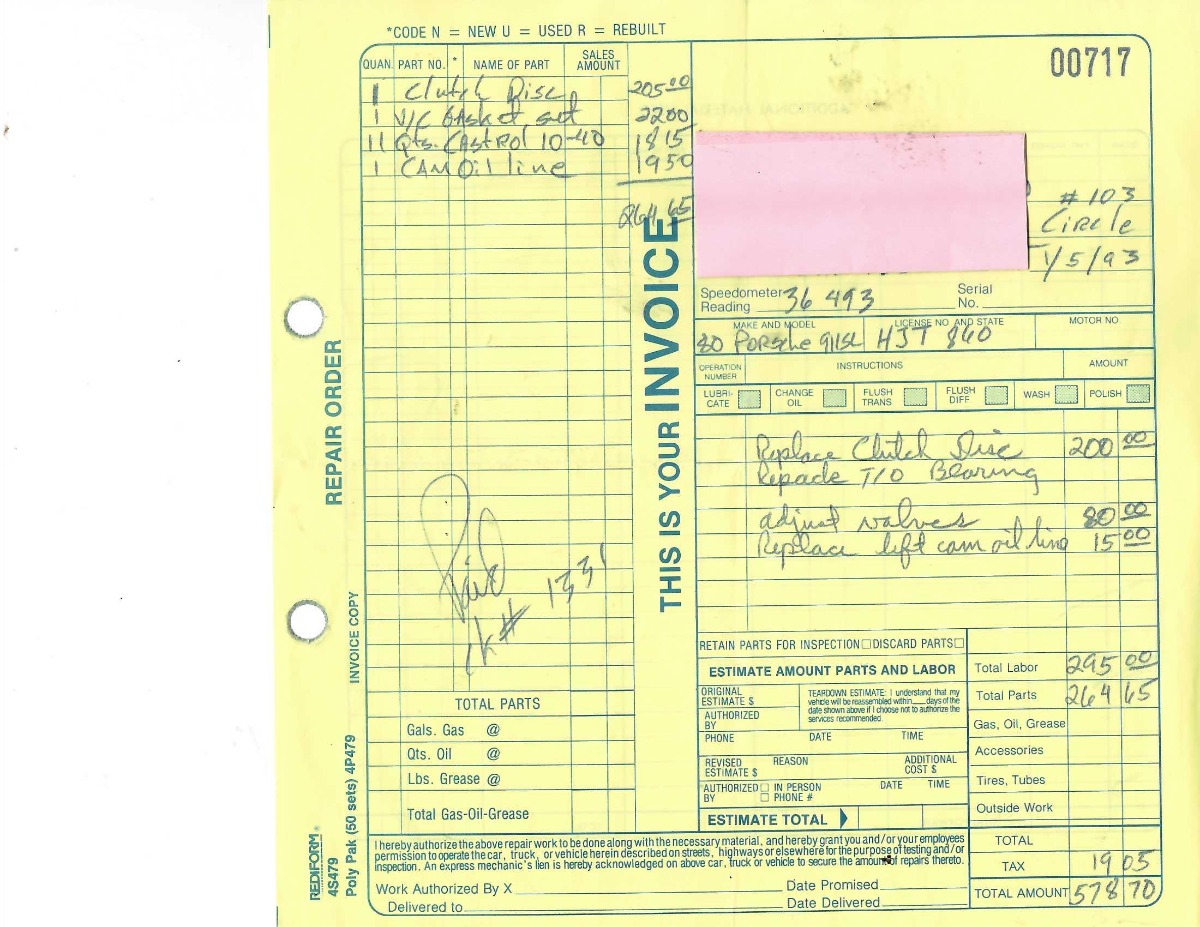 *CODE N = NEW U = USED R = REBUILT
00717
QUAN. PART NO. * NAME OF PART SALES AMOUNT
1 Clutch Disc 205 00
1 V/C Gasket set 22 00
11 Qts. CAstRol 10-40 18 15
1 CAM Oil line 19 50
264 65
# 103
CiRcle
1/5/93
Speedometer Reading 36 493 Serial No.
MAKE AND MODEL LICENSE NO. AND STATE MOTOR NO.
80 PoRsche 911SC HJT 860
OPERATION NUMBER INSTRUCTIONS AMOUNT
LUBRI-CATE CHANGE OIL FLUSH TRANS FLUSH DIFF WASH POLISH
Replace Clutch Disc 200 00
Repack T/O Bearing
adjust valves 80 00
Replace left cam oil line 15 00
THIS IS YOUR INVOICE
REPAIR ORDER
INVOICE COPY
Paid
ck# 1331
RETAIN PARTS FOR INSPECTION DISCARD PARTS
ESTIMATE AMOUNT PARTS AND LABOR
ORIGINAL ESTIMATE $
AUTHORIZED BY
TEARDOWN ESTIMATE: I understand that my
vehicle will be reassembled within___days of the
date shown above if I choose not to authorize the
services recommended.
PHONE DATE TIME
REVISED ESTIMATE $ REASON ADDITIONAL COST $
AUTHORIZED BY IN PERSON PHONE # DATE TIME
ESTIMATE TOTAL
Total Labor 295 00
Total Parts 264 65
Gas, Oil, Grease
Accessories
Tires, Tubes
Outside Work
TOTAL
TAX 19 05
TOTAL AMOUNT 578 70
TOTAL PARTS
Gals. Gas @
Qts. Oil @
Lbs. Grease @
Total Gas-Oil-Grease
I hereby authorize the above repair work to be done along with the necessary material, and hereby grant you and/or your employees
permission to operate the car, truck, or vehicle herein described on streets, highways or elsewhere for the purpose of testing and/or
inspection. An express mechanic's lien is hereby acknowledged on above car, truck or vehicle to secure the amount of repairs thereto.
Work Authorized By X Date Promised
Delivered to Date Delivered
REDIFORM®
4S479
Poly Pak (50 sets) 4P479